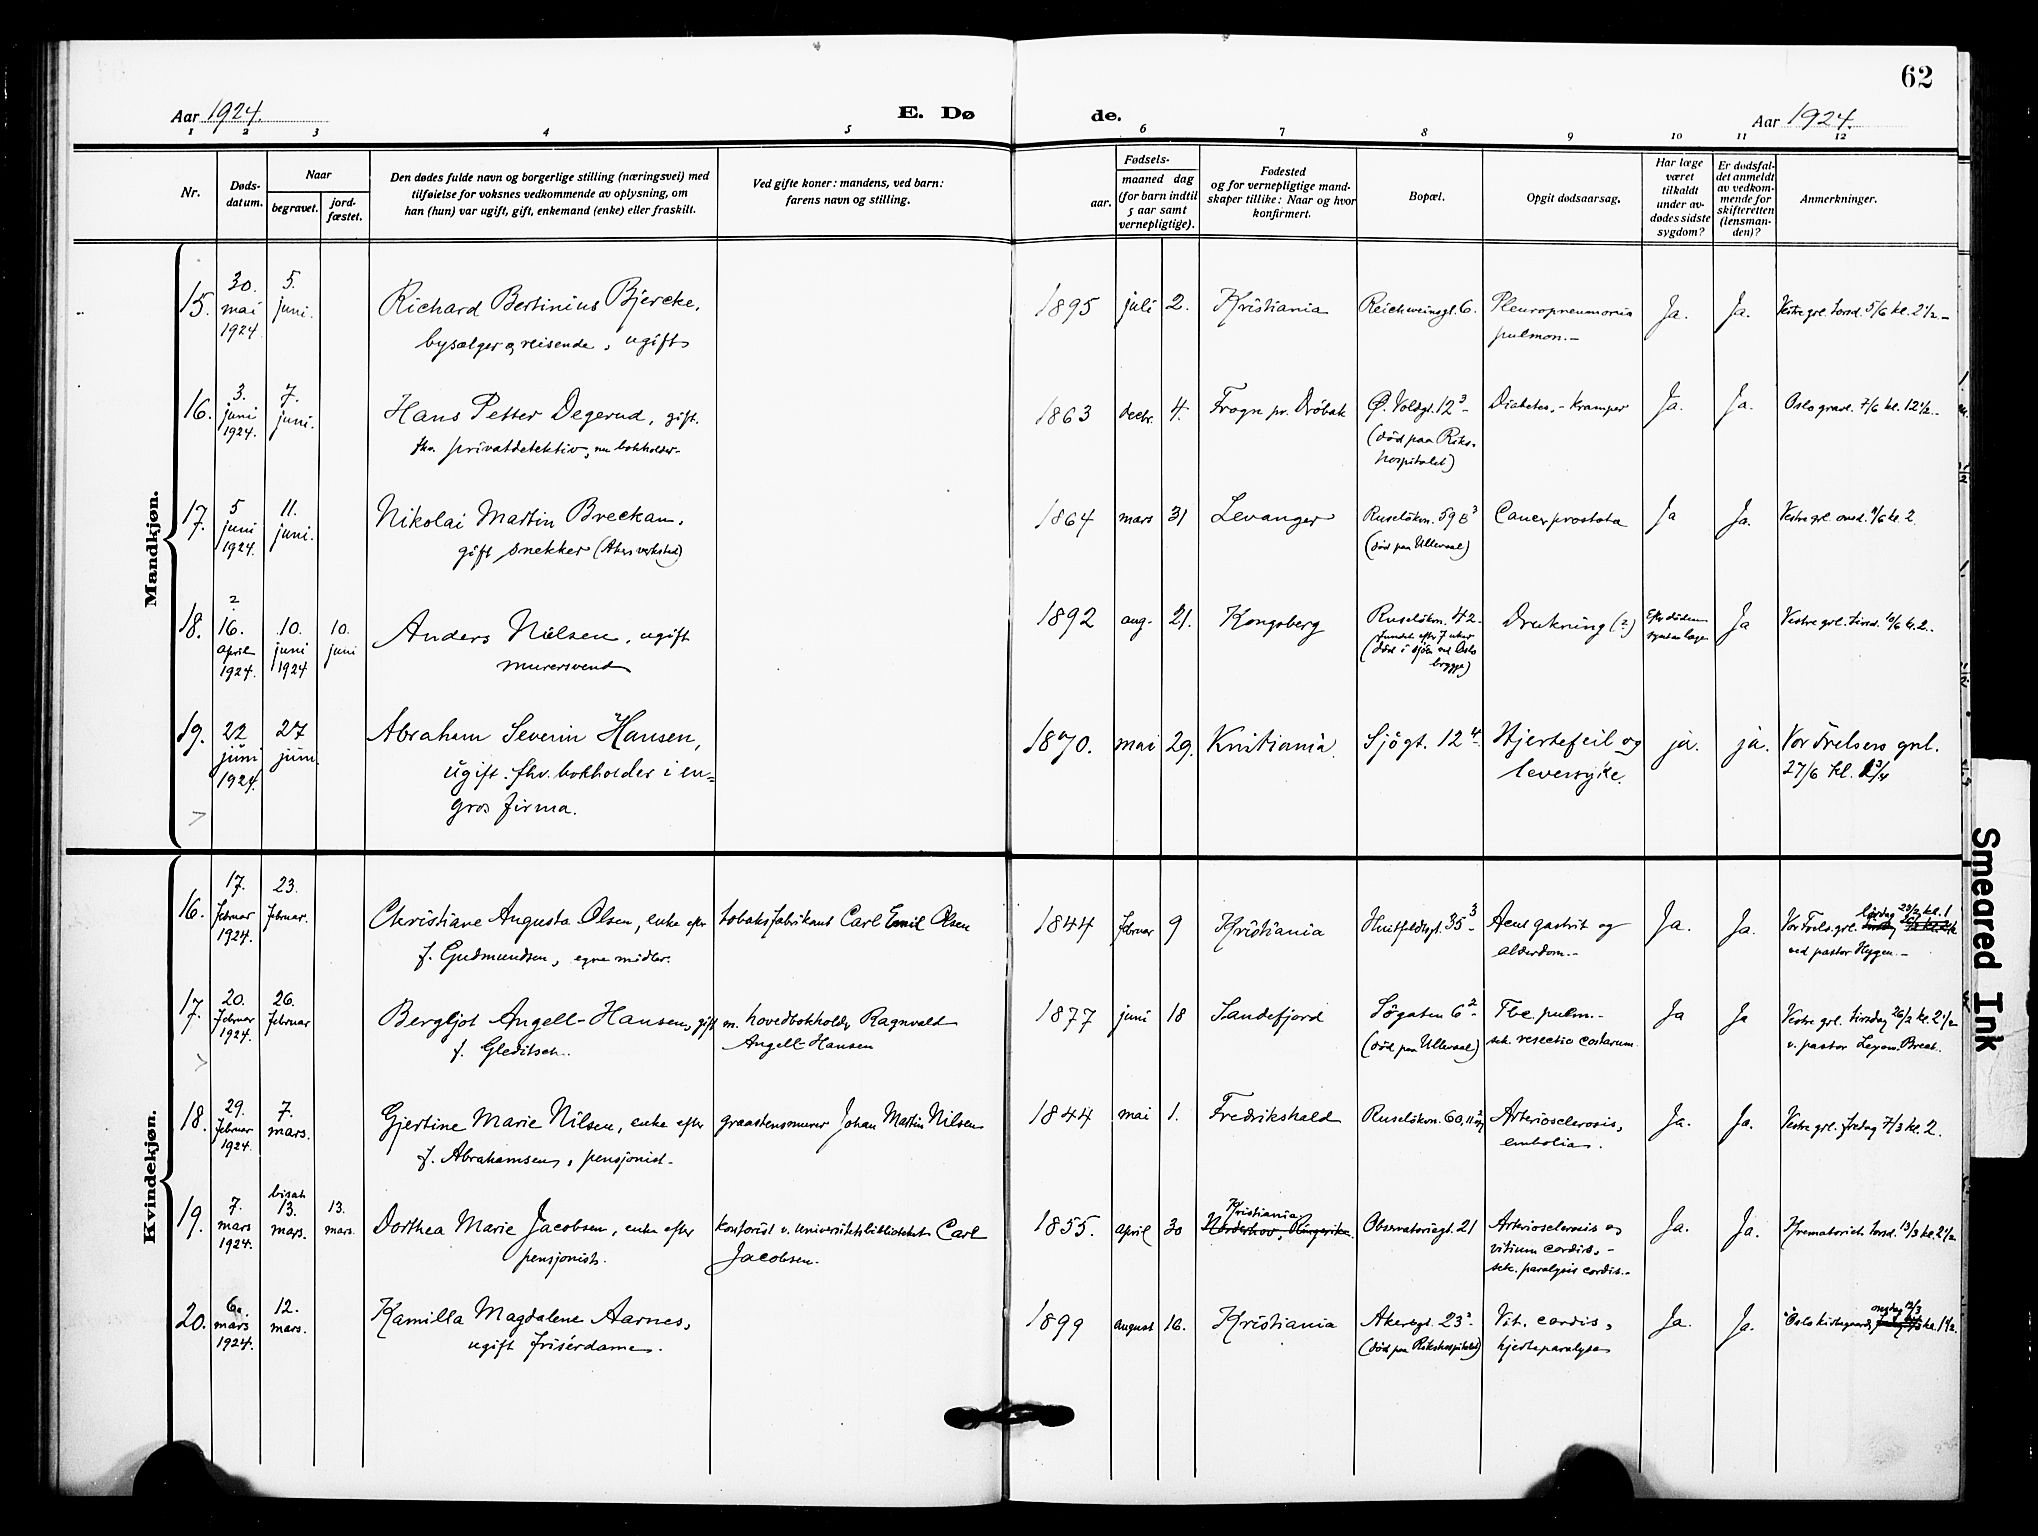 62
Aar 1924.
E. Dø
de.
Aar 1924.
1 2 3 4 5 6 7 8 9 10 11 12
Nr.
Døds-
datum.
Naar
begravet.
jord-
fæstet.
Den dødes fulde navn og borgerlige stilling (næringsvei) med
tilføielse for voksnes vedkommende av oplysning, om
han (hun) var ugift, gift, enkemand (enke) eller fraskilt.
Ved gifte koner: mandens, ved barn:
farens navn og stilling.
Fødsels-
aar.
maaned dag
(for barn indtil
5 aar samt
vernepligtige).
Fødested
og for vernepligtige mand-
skaper tillike: Naar og hvor
konfirmert.
Bopæl.
Opgit dødsaarsag.
Har læge
været
tilkaldt
under av-
dødes sidste
sygdom?
Er dødsfal-
det anmeldt
av vedkom-
mende for
skifteretten
(lensman-
den)?
Anmerkninger.
Mandkjøn.
15. 30. mai 1924 5. juni.
Richard Bertinius Bjercke,
bysælger og reisende, ugift
1895 juli 2. Kristiania
Reichweinsgt. 6.
Pleuropneumonia
pulmon.-
Ja. Ja.
Vestre grl. torsd. 5/6 kl. 2 1/2 -
16. 3. juni 1924. 7. juni.
Hans Petter Degerud, gift.
fhv. privatdetektiv, nu bokholder-
1863 decbr. 4. Frogn pr. Drøbak
Ø. Voldgt. 12³-
(død paa Riks-
hospitalet)
Diabetes, - kramper
Ja. Ja.
Oslo gravl. 7/6 kl. 12 1/2.-
17. 5 juni 1924. 11. juni.
Nikolai Martin Breckan,
gift snekker (Akers verksted)
1864 mars 31 Levanger
Ruseløkvn. 59 B³
(død paa Ullevaal)
Cancer prostata
Ja Ja.
Vestre grl. onsd. 11/6 kl. 2.
18. ? 16. april 1924. 10. juni 1924 10. juni
Anders Nilsen, ugift
murersvend
1892 aug. 21. Kongsberg
Ruseløkvn. 42-
(fundet efter 7 uker
død i sjøen ved Oslo
brygge)
Drukning (?)
Efter døden
Ja
Vestre grl. tirsd. 10/6 kl. 2.
19. 22 juni 1924. 27 juni.
Abraham Severin Hansen,
ugift. fhv. bokholder i en-
gros firma.
1870. mai 29. Kristiania.
Sjøgt. 12⁴
Hjertefeil og
leversyke.
ja. ja.
Vor Frelsers grl.
27/6 kl.
Kvindekjøn.
16. 17. februar 1924. 23. februar.
Christiane Augusta Olsen, enke efter
f. Gudmundsen, egne midler.
tobaksfabrikant Carl Emil Olsen
1844 februar 9 Kristiania
Huitfeldtsgt. 35³-
Acut gastrit og
alderdom.-
Ja. Ja.
lørdag 23/2 kl. 1
Vor Frels. grl.
ved pastor Hygen.-
17. 20. februar 1924. 26. februar
Bergljot Angell-Hansen, gift
f. Gleditsch.
m. hovedbokholder Ragnvald
Angell-Hansen
1877 juni 18 Sandefjord
Søgaten 6²-
(død paa Ullevaal)
Tbc. pulm.-
seh. resectio costarum
Ja Ja
Vestre grl. tirsdag 26/2 kl. 2 1/2
v. pastor
18. 29. februar 1924. 7. mars.
Gjertine Marie Nilsen, enke efter
f. Abrahamsen, pensjonist.
graastensmurer Johan Martin Nilsen
1844 mai 1. Fredrikshald
Ruseløkvn. 60,
Arteriosclerosis,
embolia.
Ja. Ja.
Vestre grl. fredag 7/3 kl. 2.
19. 7. mars 1924. bisat 13. mars. 13. mars.
Dorthea Marie Jacobsen, enke efter
pensjonist.
kontorist v. Universitetsbiblioteket Carl
Jacobsen.
1855. april 30 Kristiania
Norderhov, Ringerike.
Observatoriegt. 21
Arteriosclerosis og
vitium cordis, -
seh. paralysis cordis.-
Ja. Ja.
Krematoriet torsd. 13/3 kl. 2 1/2
20. 6. mars 1924. 12. mars.
Kamilla Magdalene Aarnes,
ugift frisérdame.
1899 august 16. Kristiania
Akersgt. 23²-
(død paa Rikshospitalet)
Vit. cordis,
hjerteparalyse
Ja. Ja.
onsdag 12/3
Oslo kirkegaard, kl. 1 1/2.
Smeared Ink